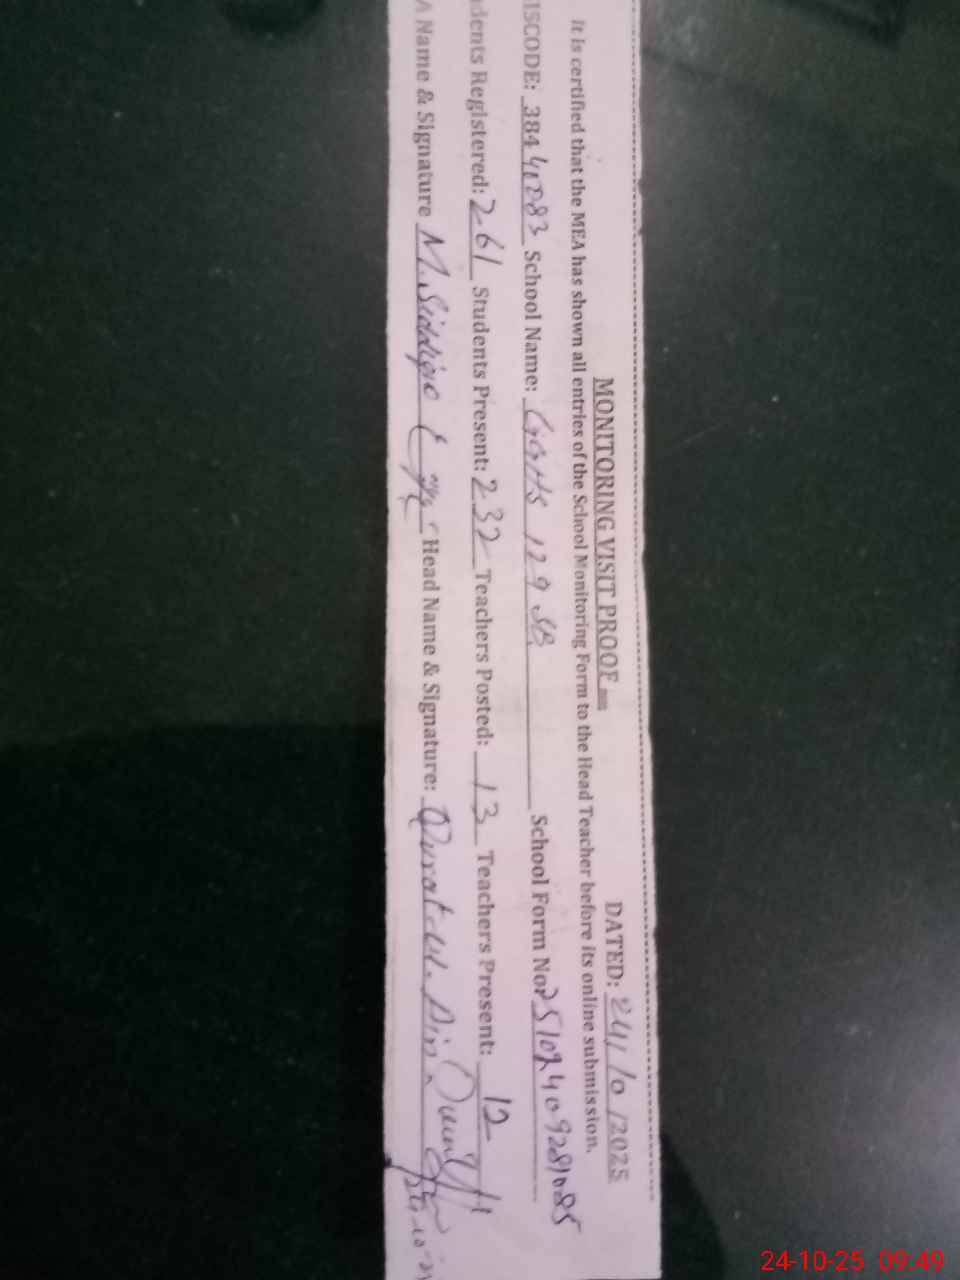 MONITORING VISIT PROOF DATED: 24/10/2025
It is certified that the MEA has shown all entries of the School Monitoring Form to the Head Teacher before its online submission.
ISCODE: 38441083 School Name: GGHS 129 SB School Form No: 25102409281085
dents Registered: 261 Students Present: 232 Teachers Posted: 13 Teachers Present: 12
A Name & Signature M. Siddique Head Name & Signature: Qurat-ul-Ain
24-10-25 09:49